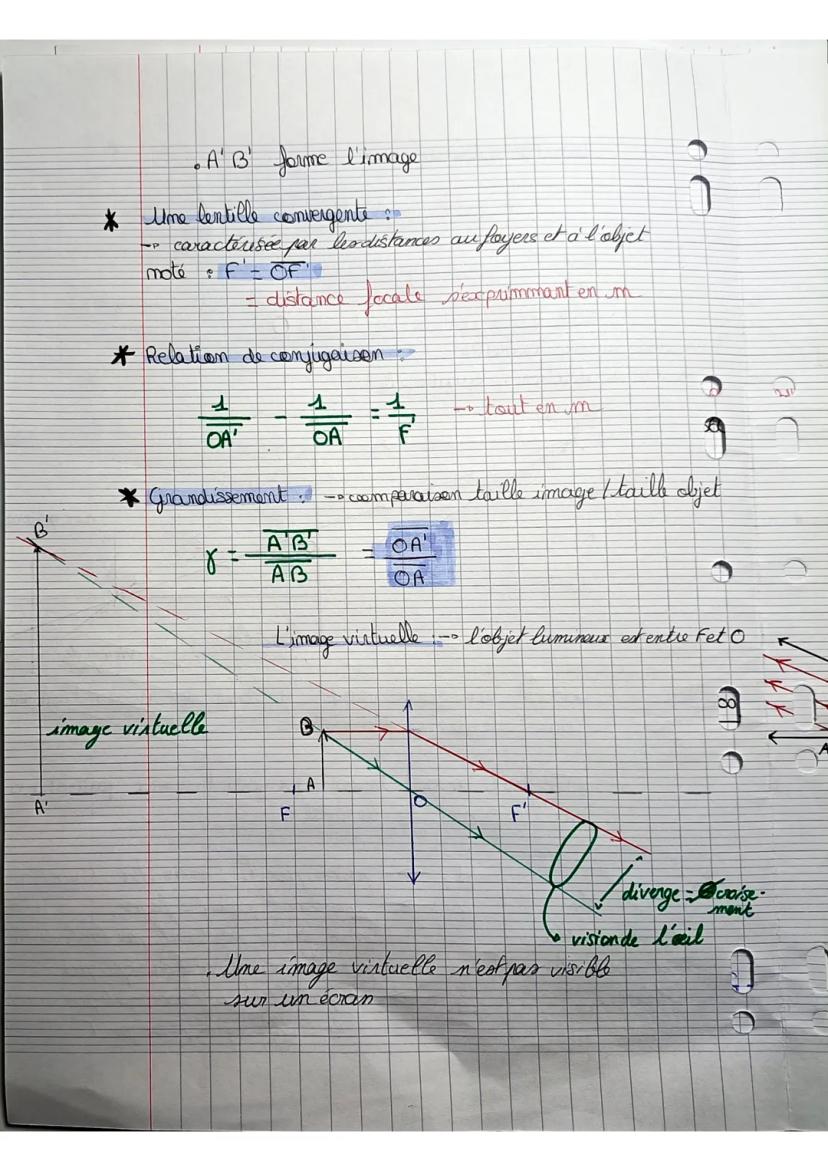 . A'B' forme l'image
* Une lentille convergente :
→ caractérisée par les distances au foyers et à l'objet
noté : F' = OF'
= distance focale s'exprimmant en m
* Relation de conjugaison :
1/OA' - 1/OA = 1/F' → tout en m
* Grandissement : → comparaison taille image / taille objet
B'
γ = A'B'/AB = OA'/OA
L'image virtuelle : → l'objet lumineux est entre F et O
image virtuelle
B
A
A
A'
F
O
F'
diverge = croise-
ment
vision de l'œil
. Une image virtuelle n'est pas visible
sur un écran